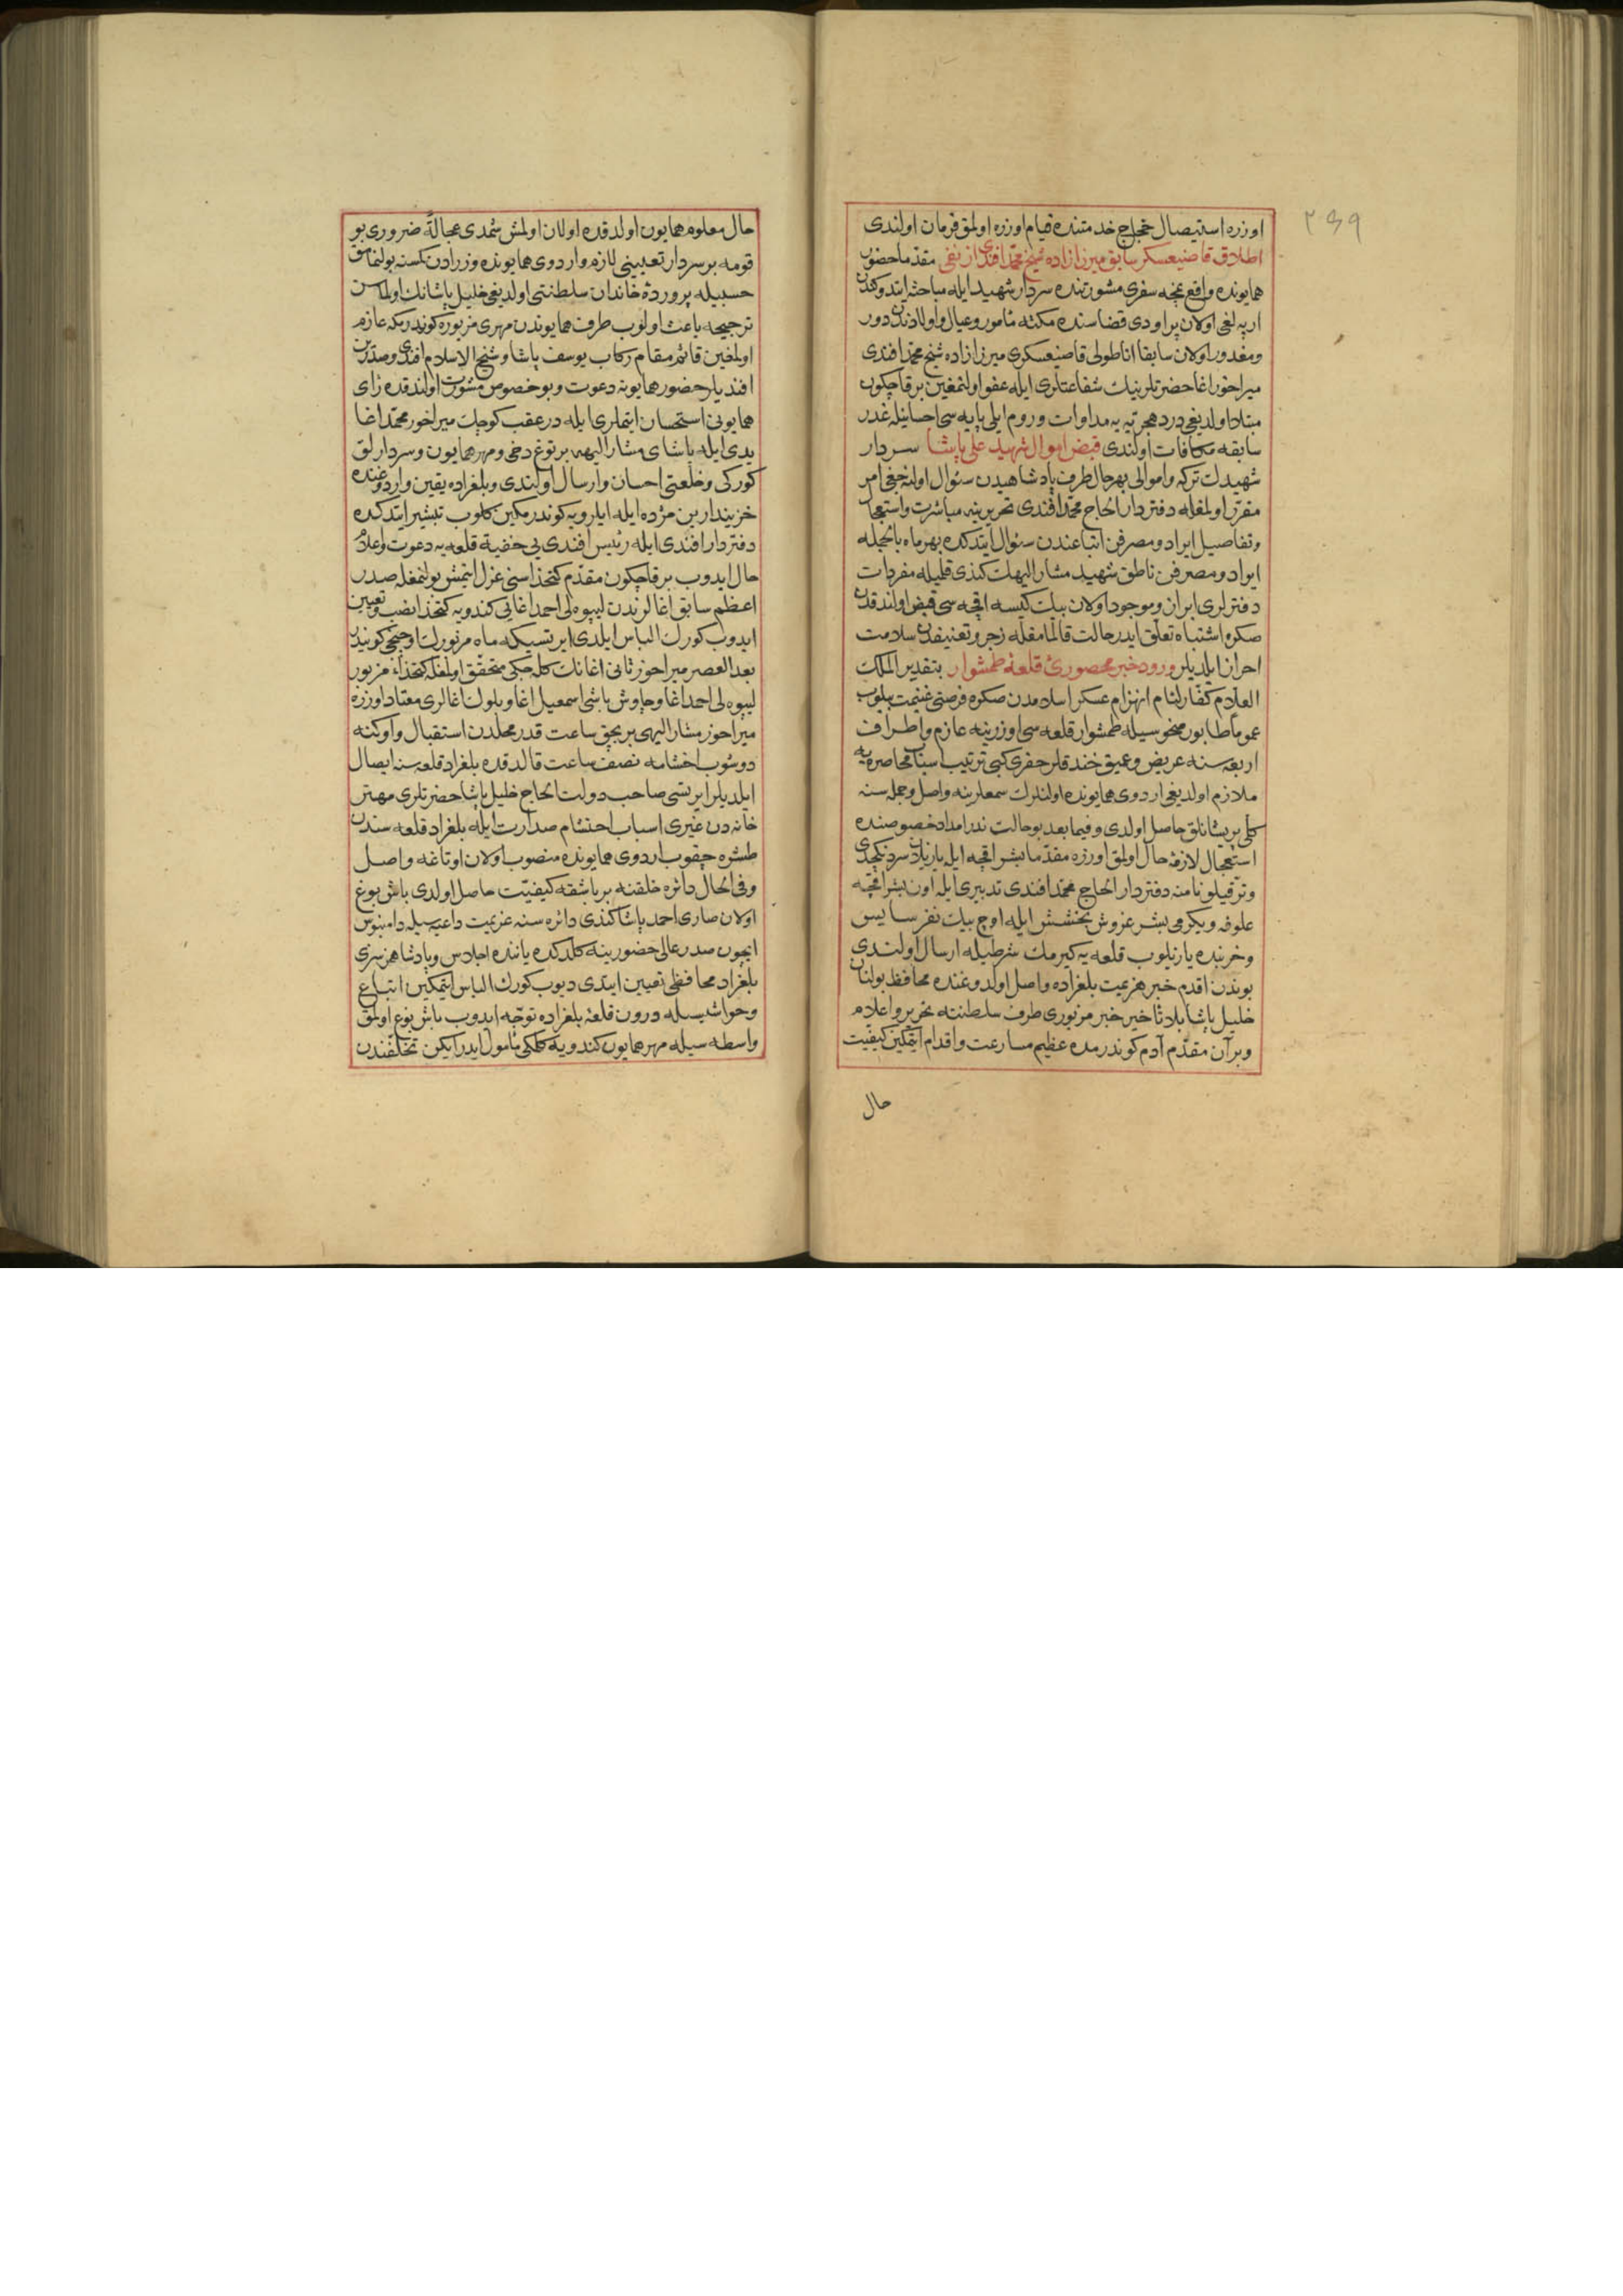 ٢٣٩
اوزره استیصال خجلاج خدمتنده قیام اوزره اولمق فرمان اولندی
اطلاق قاضیعسکر سابق میرزازاده شیخ محمد افندی از نفی مقدما حضور
همایونده واقع نمچه سفری مشورتنده سردار شهید ایله مباحثه ایتدوکندن
ارپه لغی اولان پراودی قضاسنده مکثه مأمور وعیال واولادندن دور
ومغدور اولان سابقا اناطولی قاضیعسکری میرزازاده شیخ محمد افندی
میراخور اغا حضرتلرینك شفاعتلری ایله عفو اولنمغین برقاچکون
مبتلا اولدیغی درد هجرتیه مداوات وروم ایلی پایه سی احسانیله غدر
سابقه مکافات اولندی قبض اموال شهید علی پاشا سردار
شهیدك ترکه واموالی بهرحال طرف پادشاهیدن سئوال اولنه جغی امر
مقرر اولمغله دفتردار الحاج محمد افندی تحریرینه مباشرت واستعجال
وتفاصیل ایراد ومصرفن اتباعندن سئوال ایتدکده بهرماه بالجمله
ایراد ومصرفن ناطق شهید مشار الیهك کندی قلمیله مفردات
دفترلری ابراز وموجود اولان بیك کیسه اقچه سی قبض اولندقدن
صکره اشتباه تعلق ایدر حالت قالمامغله زجر وتعنیفدن سلامت
احراز ایلدیلر ورود خبر محصورئ قلعۀ طمشوار بتقدیر الملك
العلام کفار لئام انهزام عسکر اسلامدن صکره فرصتی غنیمت بیلوب
عموما طابور منحوسیله طمشوار قلعه سی اوزرینه عازم واطراف
اربعه سنه عریض وعمیق خندقلر حفری کبی ترتیب اسباب محاصره یه
ملازم اولدیغی اردوی همایونده اولنلرك سمعلرینه واصل وجمله سنه
کلی پریشانلق حاصل اولدی وفیما بعد بو حالت ندر امداد خصوصنده
استعجال لازمۀ حال اولمق اوزره مقدما بشر اقچه ایله یازیلان سردنکچدی
وترقیلو نامنه دفتردار الحاج محمد افندی تدبیری ایله اون بشر اقچه
علوفه ویکرمی بشر غروش بخشش ایله اوچ بیك نفر سایس
وخربنده یازیلوب قلعه یه کیرمك شرطیله ارسال اولندی
بوندن اقدم خبر هزیمت بلغراده واصل اولدوغنده محافظ بولنان
خلیل پاشا بلا تأخیر خبر مزبوری طرف سلطنته تحریر واعلام
وبرآن مقدم آدم کوندرمده عظیم مسارعت واقدام ایتمکین کیفیت
حال
حال معلوم همایون اولدقده اولان اولمش شمدی عجالةً ضروری بو
قومه بر سردار تعیینی لازم واردوی همایونده وزرادن کسنه بولنمامق
حسبیله پروردۀ خاندان سلطنتی اولدیغی خلیل پاشانك اولماسن
ترجیحه باعث اولوب طرف همایوندن مهری مزبوره کوندرمکه عازم
اولمغین قائم مقام رکاب یوسف پاشا وشیخ الاسلام افندی وصدرین
افندیلر حضور همایونه دعوت وبو خصوص مشورت اولندقده رای
همایونی استحسان ایتملری ایله در عقب کوچك میراخور محمد اغا
یدی ایله پاشای مشار الیهه بر توغ دخی ومهر همایون وسردارلق
کورکی وخلعتی احسان وارسال اولندی وبلغراده یقین واردوغنده
خزیندارین مژده ایله ایلرویه کوندرمکین کلوب تبشیر ایتدکده
دفتردار افندی ایله رئیس افندی یی خفیة قلعه یه دعوت واعلام
حال ایدوب برقاچکون مقدم کتخداسنی عزل ایتمش بولنمغله صدر
اعظم سابق اغالرندن لیپوه لی احمد اغایی کندویه کتخدا نصب وتعیین
ایدوب کورك الباس ایلدی ایرتسیکه ماه مزبورك اوچنجی کونیدر
بعد العصر میراخور ثانی اغانك کله جکی متحقق اولمغله کتخداء مزبور
لیپوه لی احمد اغا وچاوش باشی اسمعیل اغا وبلوك اغالری معتاد اوزره
میراخور مشار الیهی بر بچق ساعت قدر محلدن استقبال واوکنه
دوشوب اخشامه نصف ساعت قالدقده بلغراد قلعه سنه ایصال
ایلدیلر ایرتسی صاحب دولت الحاج خلیل پاشا حضرتلری مهتر
خانه دن غیری اسباب احتشام صدارت ایله بلغراد قلعه سندن
طشره چقوب اردوی همایونده منصوب اولان اوتاغه واصل
وفی الحال دائره خلقنه بر باشقه کیفیت حاصل اولدی باش بوغ
اولان صاری احمد پاشا کندی دائره سنه عزیمت داعیه سیله دامنبوس
ایچون صدر عالی حضورینه کلدکده یاننده اجلاس وپادشاهمز سزی
بلغراد محافظی تعیین ایتدی دیوب کورك الباس ایتمکین اتباع
وحواشیسیله درون قلعۀ بلغراده توجه ایدوب باش بوغ اولمق
واسطه سیله مهر همایون کندویه کلمکی مأمول ایدر ایکن تخلفندن